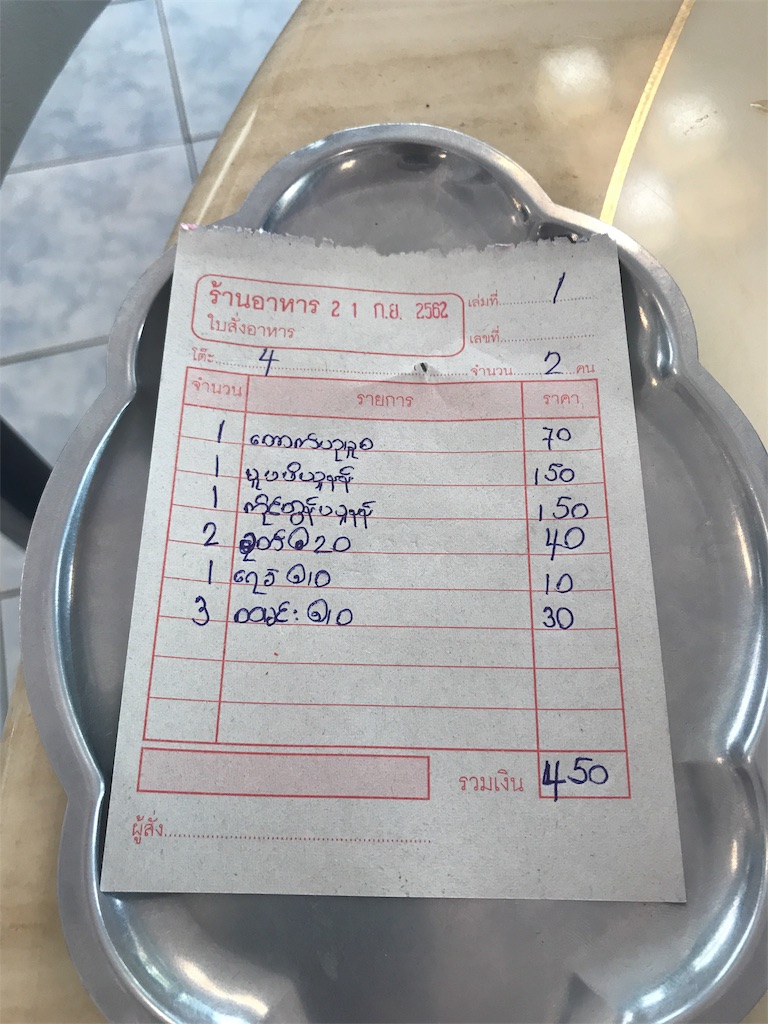 ร้านอาหาร 2 1 ก.ย. 2562
ใบสั่งอาหาร
เล่มที่ 1
เลขที่
โต๊ะ 4 จำนวน 2 คน
จำนวน รายการ ราคา
1 70
1 150
1 150
2 @20 40
1 ရေခဲ @10 10
3 ထမင်း @10 30
รวมเงิน 450
ผู้สั่ง